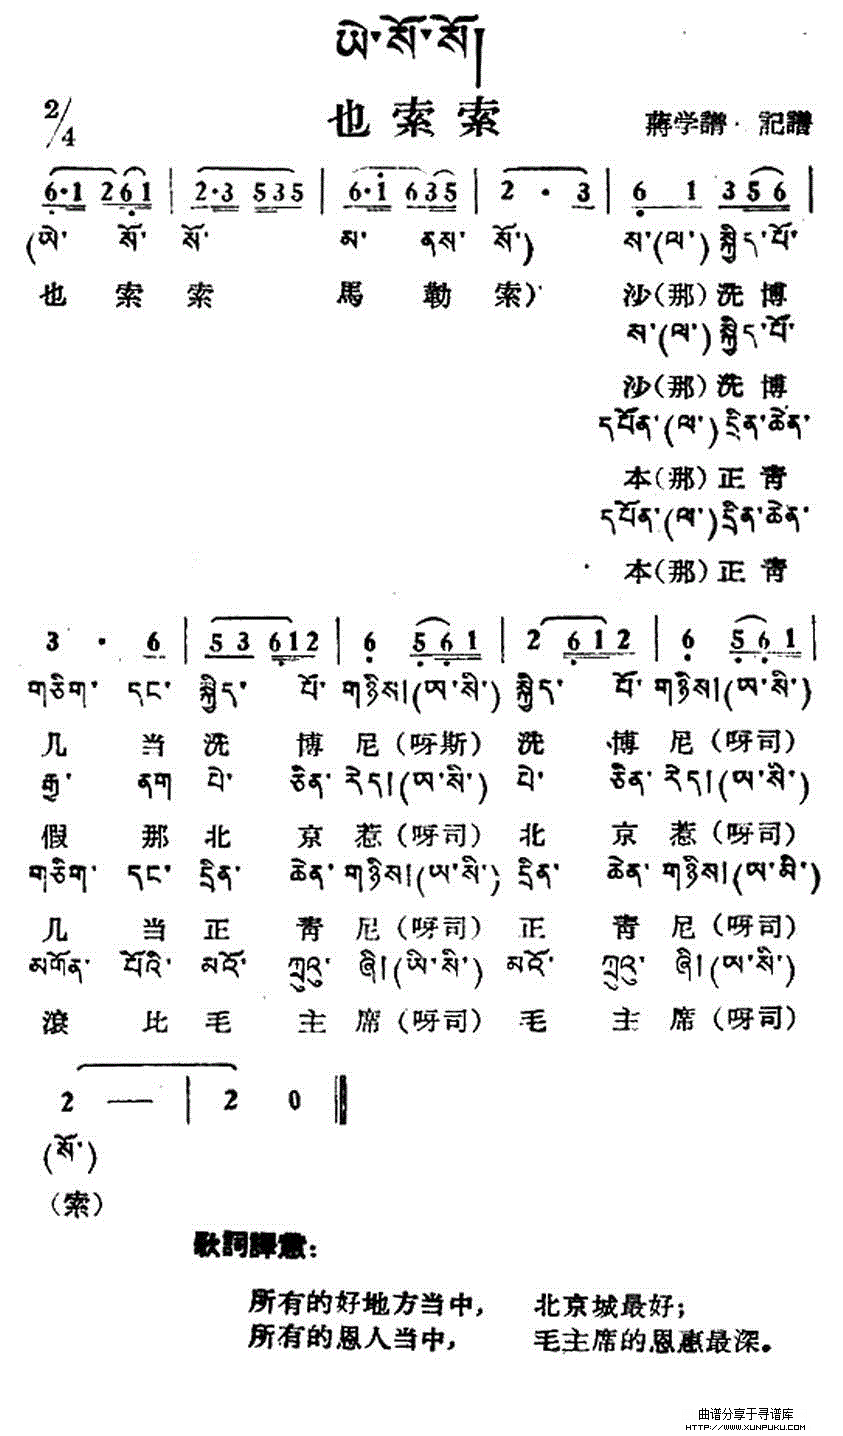 ཡེ་སོ་སོ།
2/4
也索索
蔣学譜·記譜
6·1 261 | 2·3 535 | 6·i 635 | 2·3 | 6 1 356 |
(ཡེ་ སོ་ སོ་ མ་ ནས་ སོ་) ས་(ལ་) སྐྱིད་པོ་
也索索 馬勒索) 沙(那)洗博
ས་(ལ་) སྐྱིད་པོ་
沙(那)洗博
དཔོན་(ལ་) དྲིན་ཆེན་
本(那)正靑
དཔོན་(ལ་) དྲིན་ཆེན་
本(那)正靑
3·6 | 53 612 | 6 561 | 2 612 | 6 561 |
གཅིག་ དང་ སྐྱིད་ པོ་ གཉིས།(ཨ་སི་) སྐྱིད་ པོ་ གཉིས།(ཨ་སི་)
几当洗博尼(呀斯)洗博尼(呀司)
རྒྱ་ ནག པེ་ ཅིན་ རེད།(ཨ་སི་) པེ་ ཅིན་ རེད།(ཨ་སི་)
假那北京惹(呀司)北京惹(呀司)
གཅིག་ དང་ དྲིན་ ཆེན་ གཉིས།(ཨ་སི་) དྲིན་ ཆེན་ གཉིས།(ཨ་སི་)
几当正靑尼(呀司)正靑尼(呀司)
མགོན་ པོའི་ མའོ་ ཀྲུའུ་ ཞི།(ཡི་སི་) མའོ་ ཀྲུའུ་ ཞི།(ཨ་སི་)
滾比毛主席(呀司)毛主席(呀司)
2 — | 2 0 ‖
(སོ་)
(索)
歌詞譯意:
所有的好地方当中, 北京城最好;
所有的恩人当中, 毛主席的恩惠最深。
曲谱分享于寻谱库
HTTP://WWW.XUNPUKU.COM